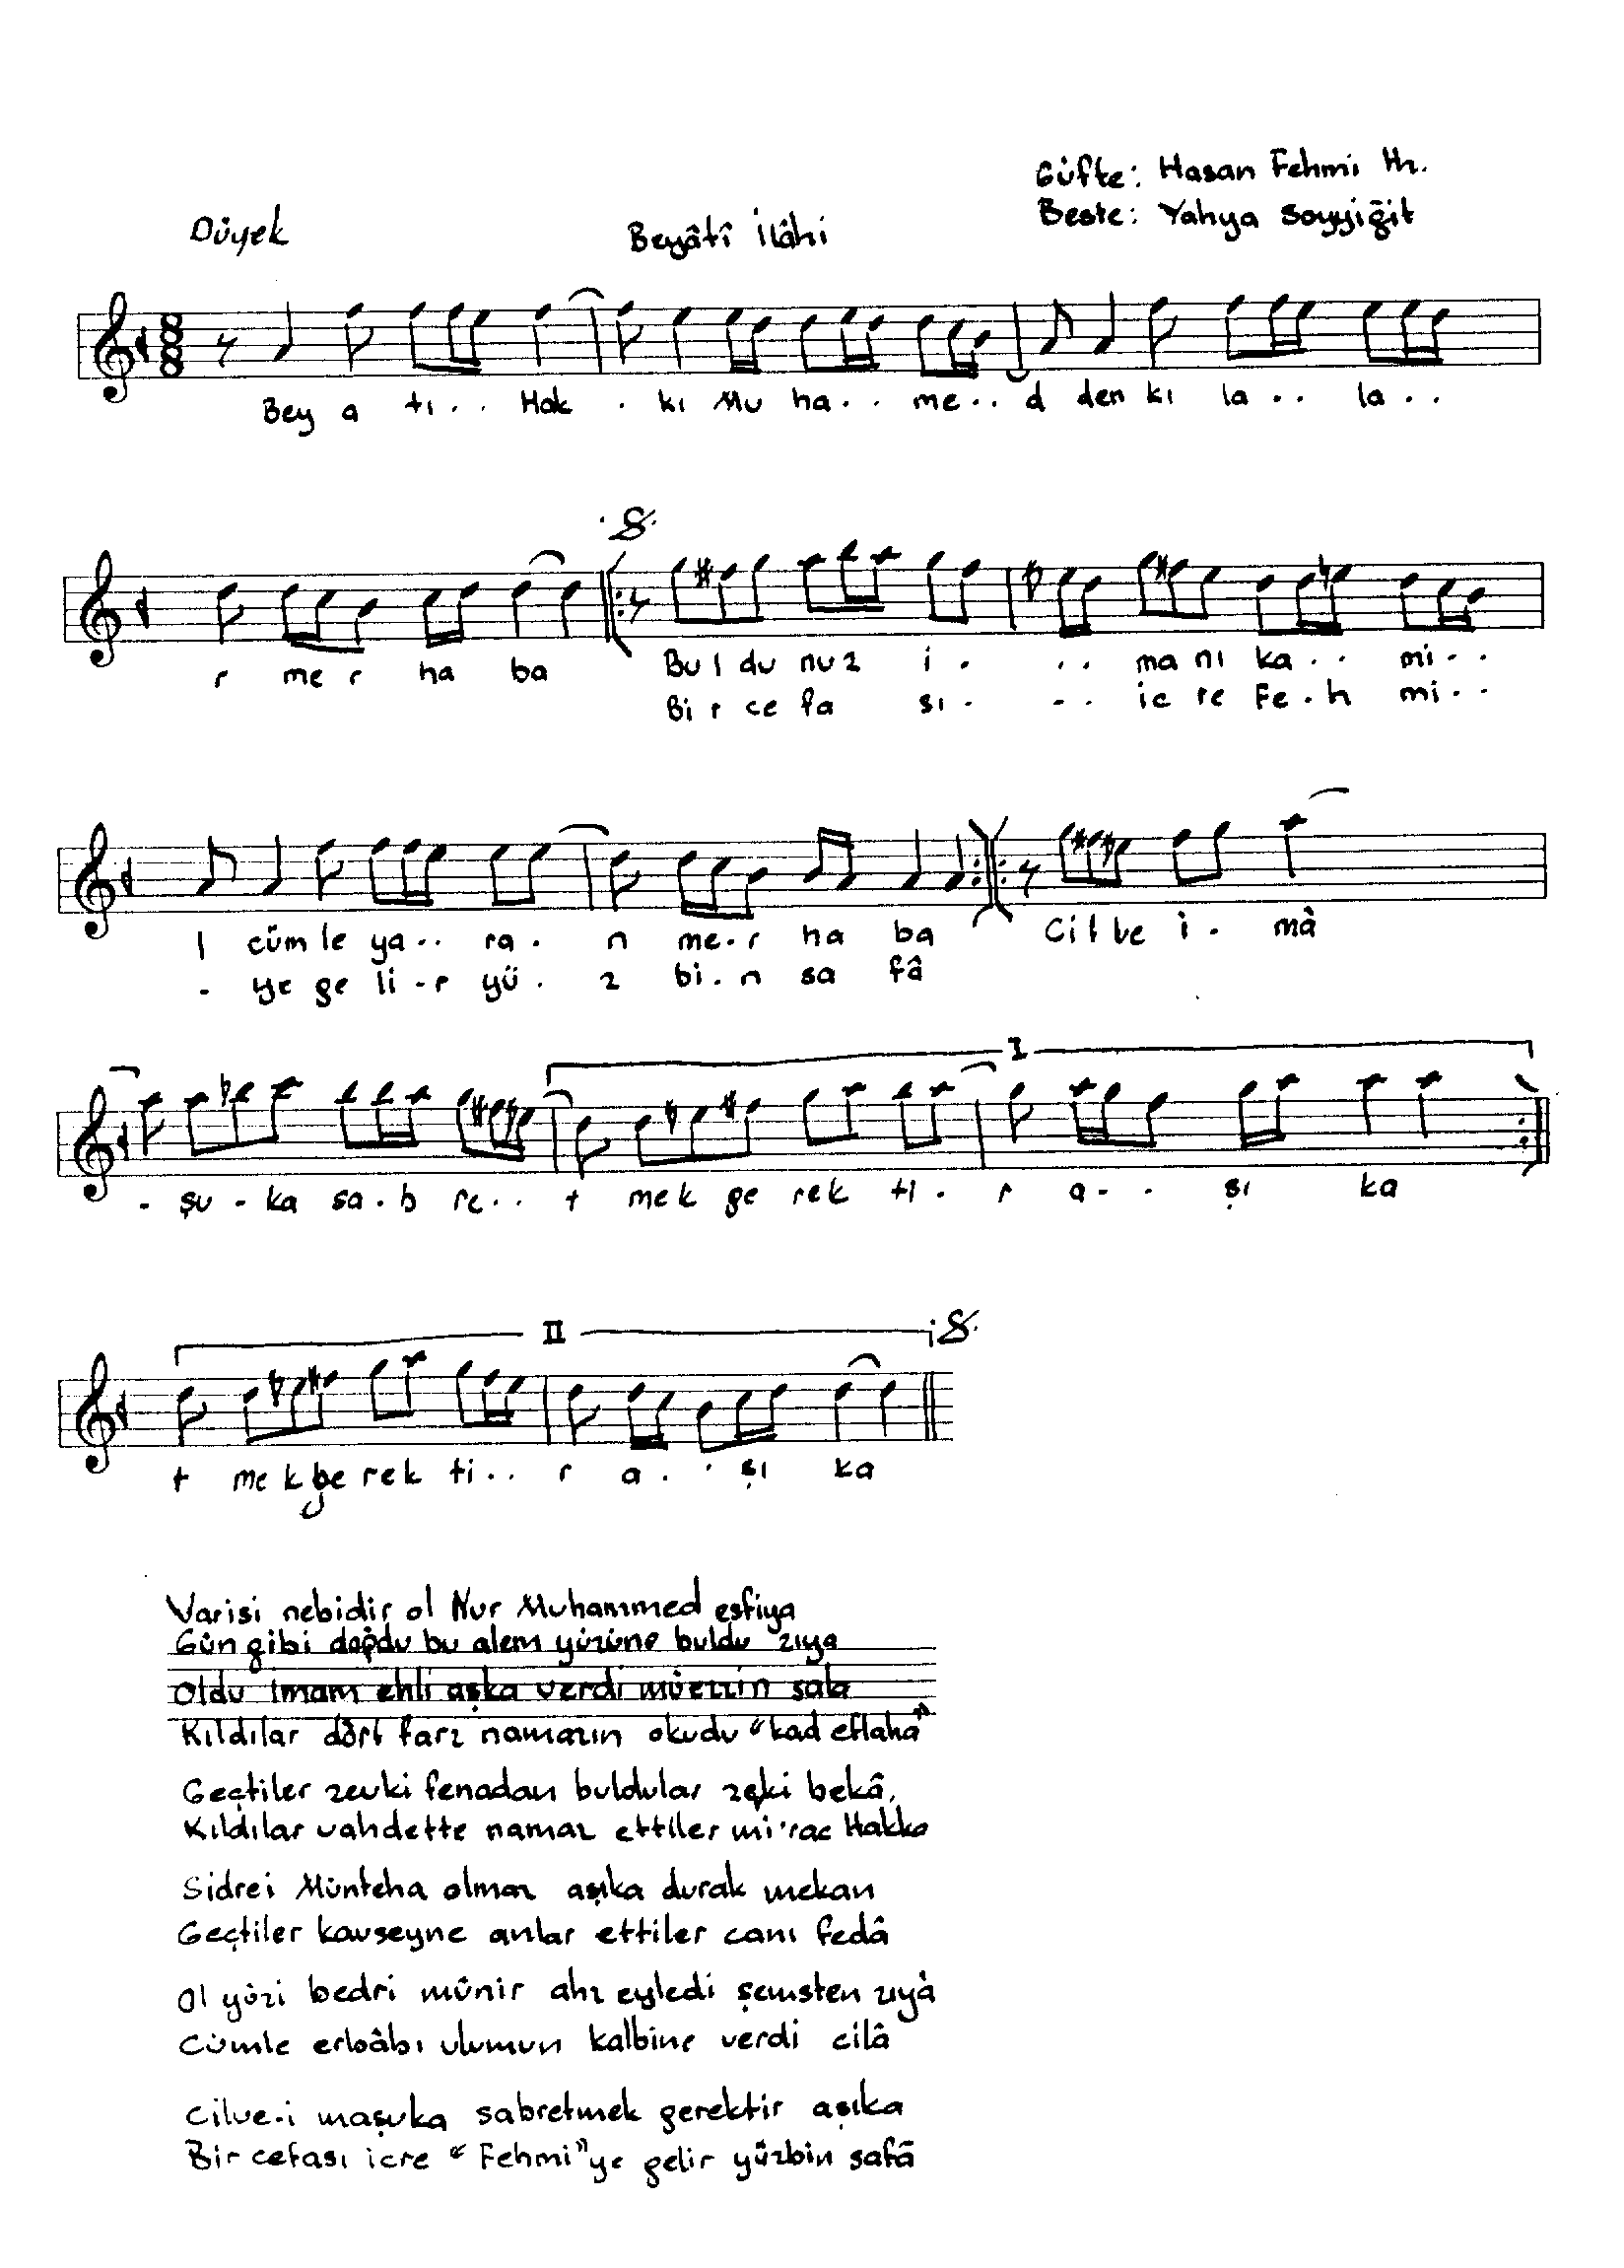 Güfte: Hasan Fehmi Hz.
Beste: Yahya Soyyiğit
Düyek
Beyâtî İlâhi
8 8
Bey a tı . . Hak . kı Mu ha . . me . . d den kı la . . la . .
r me r ha ba Bu l du nuz i . . . ma nı ka . . mi . .
Bi r ce fa sı . . . ic re Fe . h mi . .
l cüm le ya . . ra . n me . r ha ba Cil ve i . mâ
. ye ge li . r yü . z bi . n sa fâ
I
. şu . ka sa . b re . . t mek ge rek ti . r a . . şı ka
II
t mek ge rek ti . . r a . . şı ka
Varisi nebidir ol Nur Muhammed esfiya
Gün gibi doğdu bu alem yüzüne buldu zıya
Oldu imam ehli aşka verdi müezzin sala
Kıldılar dört farz namazın okudu "kad eflaha"
Geçtiler zevki fenadan buldular zevki bekâ,
Kıldılar vahdette namaz ettiler mi'rac Hakka
Sidrei Münteha olmaz aşıka durak mekan
Geçtiler kavseyne anlar ettiler canı fedâ
Ol yüzi bedri münir ahz eyledi şemsten zıyâ
Cümle erbâbı ulumun kalbine verdi cilâ
Cilve-i maşuka sabretmek gerektir aşıka
Bir cefası icre "Fehmi"ye gelir yüzbin safâ